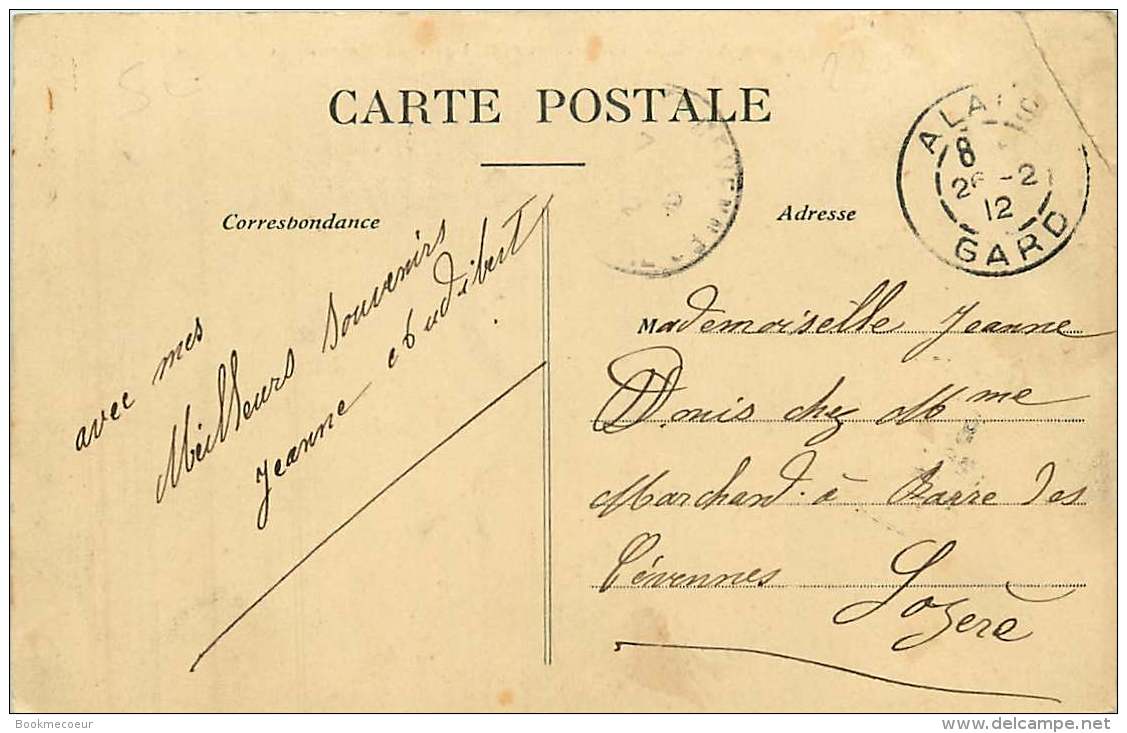 CARTE POSTALE
Correspondance
avec mes
Meilleurs Souvenirs
Jeanne
Adresse
ALAIS
8
26-2
12
GARD
Mademoiselle Jeanne
chez Mme
Marchand à Barre des
Cévennes Lozère
Bookmecoeur
www.delcampe.net